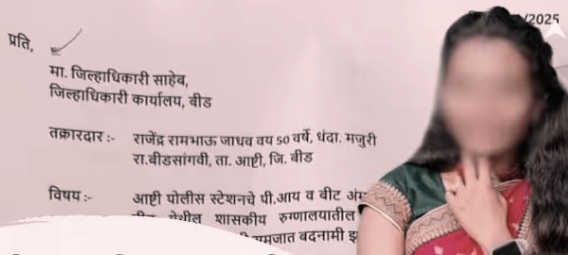 /2025
प्रति,
मा. जिल्हाधिकारी साहेब,
जिल्हाधिकारी कार्यालय, बीड
तक्रारदार :- राजेंद्र रामभाऊ जाधव वय 50 वर्षे, धंदा. मजुरी
रा.बीडसांगवी, ता. आष्टी, जि. बीड
विषय :- आष्टी पोलीस स्टेशनचे पी.आय व बीट
येथील शासकीय रुग्णालयातील
बदनामी